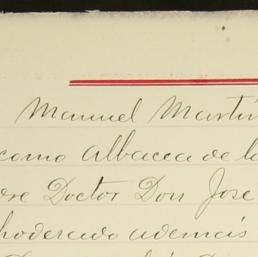 Manuel Martín
como Albacea de la
dre Doctor Don Jose
poderado además